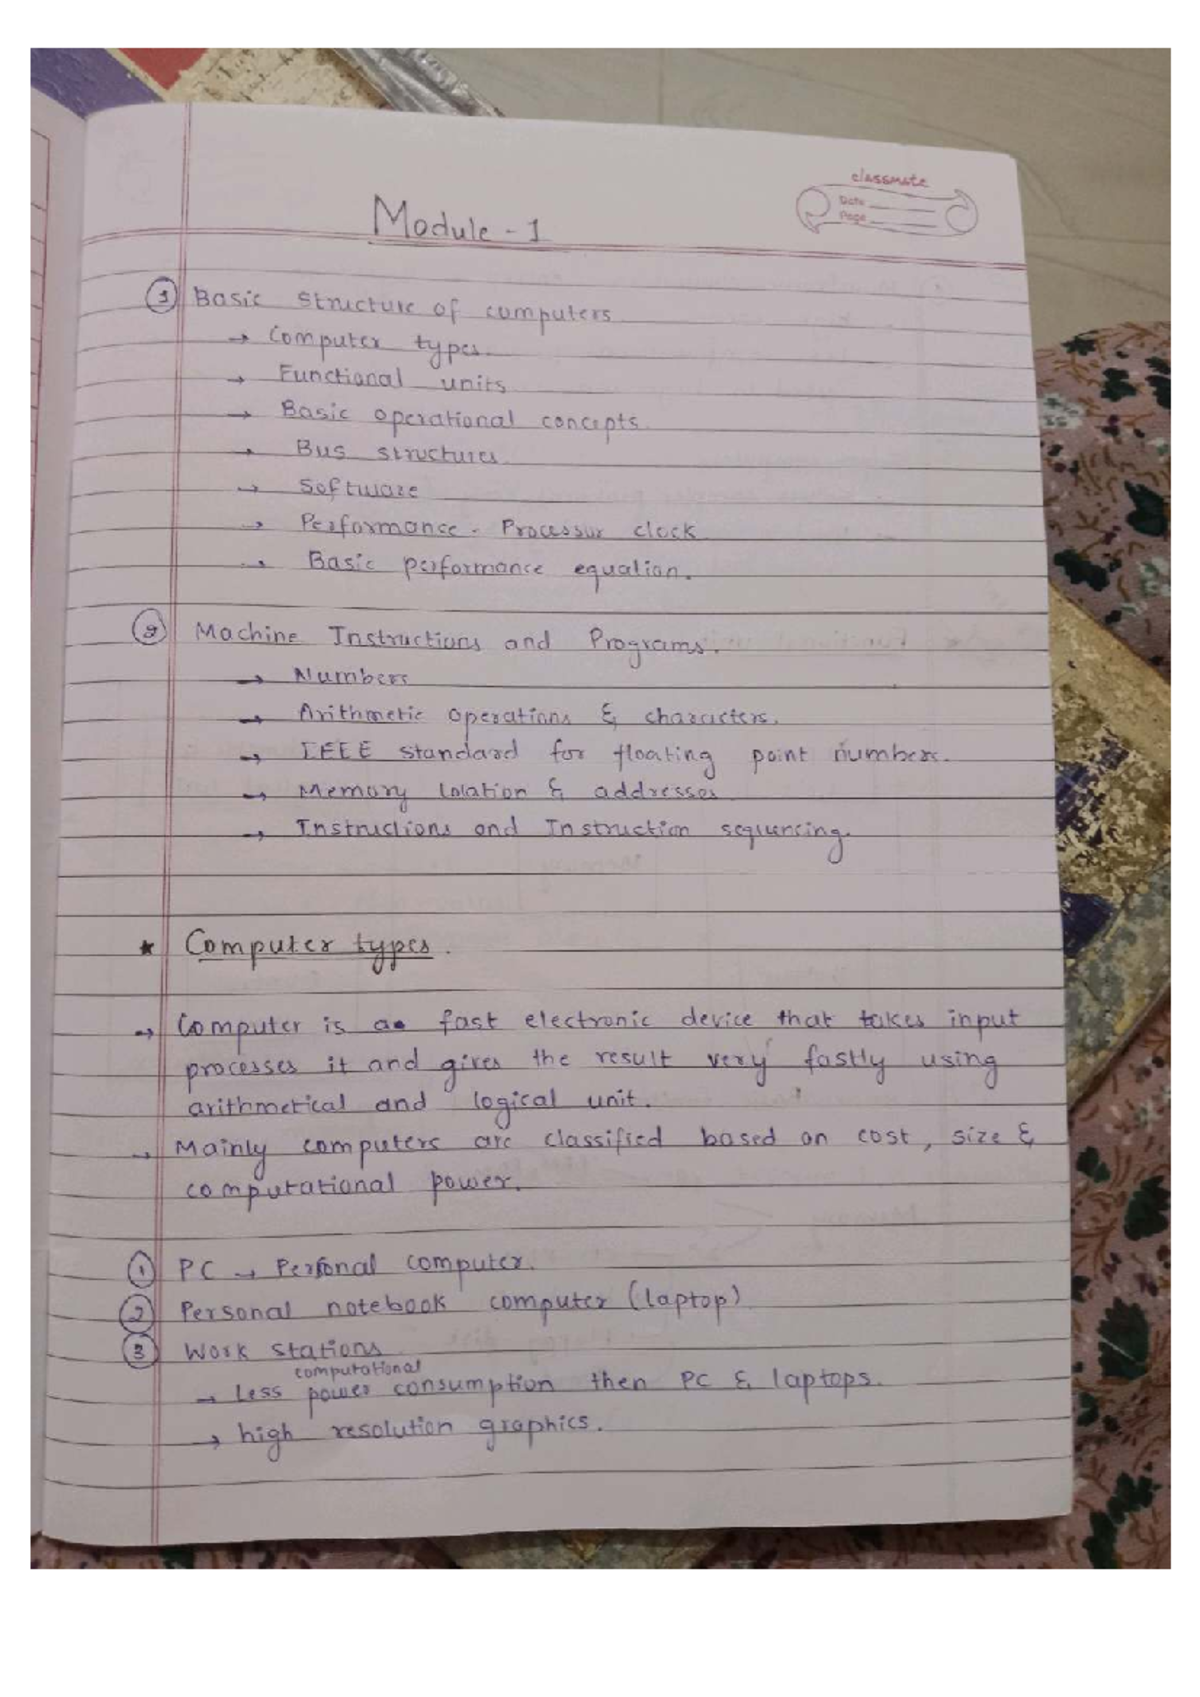 classmate
Date
Page
Module - 1
① Basic structure of computers
→ Computer types.
→ Functional units
→ Basic operational concepts.
→ Bus structures.
→ Software
→ Performance - Processor clock
→ Basic performance equation.
② Machine Instructions and Programs.
→ Numbers
→ Arithmetic operations & characters.
→ IEEE standard for floating point numbers.
→ Memory location & addresses
→ Instructions and Instruction sequencing.
* Computer types.
→ Computer is a fast electronic device that takes input
processes it and gives the result very fastly using
arithmetical and logical unit.
→ Mainly computers are classified based on cost, size &
computational power.
① PC → Personal computer.
② Personal notebook computer (laptop)
③ Work stations
computational
→ Less power consumption then PC & laptops.
→ high resolution graphics.